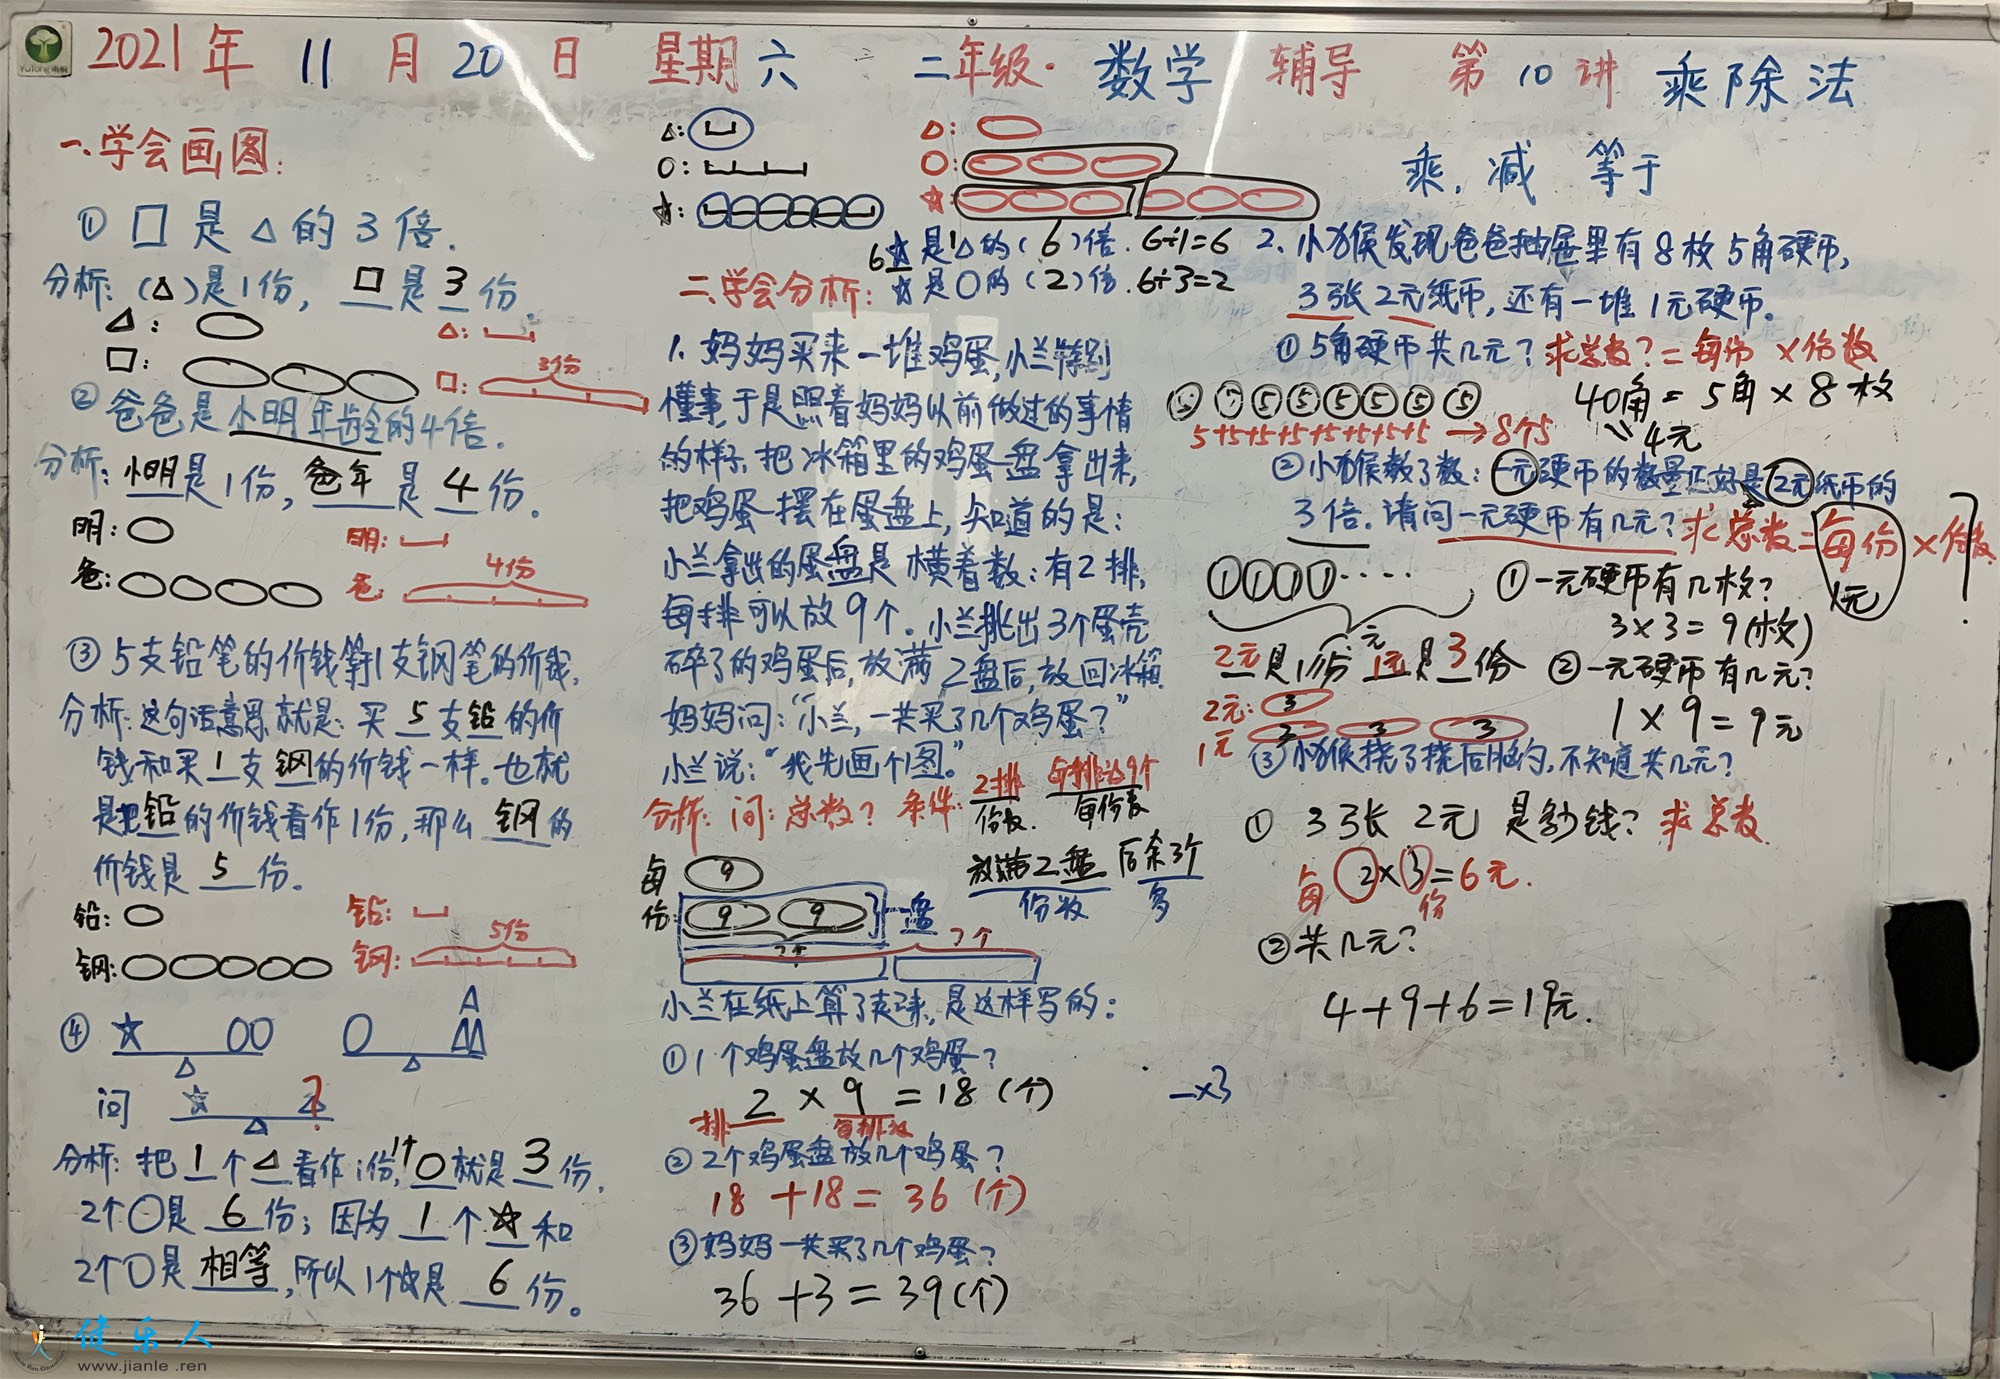 2021年 11月20日 星期六 二年级·数学 辅导 第10讲 乘除法
一.学会画图:
① □是△的3倍.
分析:(△)是1份, □是3份.
△:
□:
△:
□: 3份
② 爸爸是小明年龄的4倍.
分析:小明是1份, 爸年是4份.
明:
爸:
明:
爸: 4份
③ 5支铅笔的价钱等于1支钢笔的价钱,
分析:这句话意思就是:买5支铅的价
钱和买1支钢的价钱一样。也就
是把铅的价钱看作1份,那么钢的
价钱是5份。
铅:
钢:
铅:
钢: 5份
④
问 ?
分析:把1个△看作1份,1个○就是3份,
2个○是6份;因为1个☆和
2个○是相等,所以1个☆是6份。
△:
○:
☆:
△:
○:
☆:
6☆是1△的(6)倍. 6÷1=6
☆是○的(2)倍. 6÷3=2
二.学会分析:
1、妈妈买来一堆鸡蛋,小兰特别
懂事,于是照着妈妈以前做过的事情
的样子,把冰箱里的鸡蛋盘拿出来,
把鸡蛋摆在蛋盘上,知道的是:
小兰拿出的蛋盘是横着数:有2排,
每排可以放9个。小兰挑出3个蛋壳
碎了的鸡蛋后,放满2盘后,放回冰箱.
妈妈问:“小兰,一共买了几个鸡蛋?”
小兰说:“我先画个图。”
分析:问:总数? 条件: 2排 每排放9个
份数. 每份数
放满2盘 后余3个
份数 多
每 9
份: 9 9 一盘
?个 ?个
小兰在纸上算了起来,是这样写的:
①1个鸡蛋盘放几个鸡蛋?
2×9=18(个)
排 每排放
②2个鸡蛋盘放几个鸡蛋?
18+18=36(个)
③妈妈一共买了几个鸡蛋?
36+3=39(个)
乘.减 等于
2.小猴发现爸爸抽屉里有8枚5角硬币,
3张2元纸币,还有一堆1元硬币。
①5角硬币共几元?求总数?=每份×份数
5 5 5 5 5 5 5 5
40角=5角×8枚
5+5+5+5+5+5+5+5→8个5
4元
②小猴数了数:一元硬币的数量正好是2元纸币的
3倍.请问一元硬币有几元?求总数=每份×份数
1元 ?
1 1 1 1 ····
①一元硬币有几枚?
3×3=9(枚)
2元是1份,1元是3份
②一元硬币有几元?
2元: 3
1×9=9元
1元 3 3 3
③小猴挠了挠后脑勺,不知道共几元?
① 3张2元是多少钱?求总数.
每 2×3=6元.
份
②共几元?
4+9+6=19元.
—×3
健乐人
www.jianle.ren